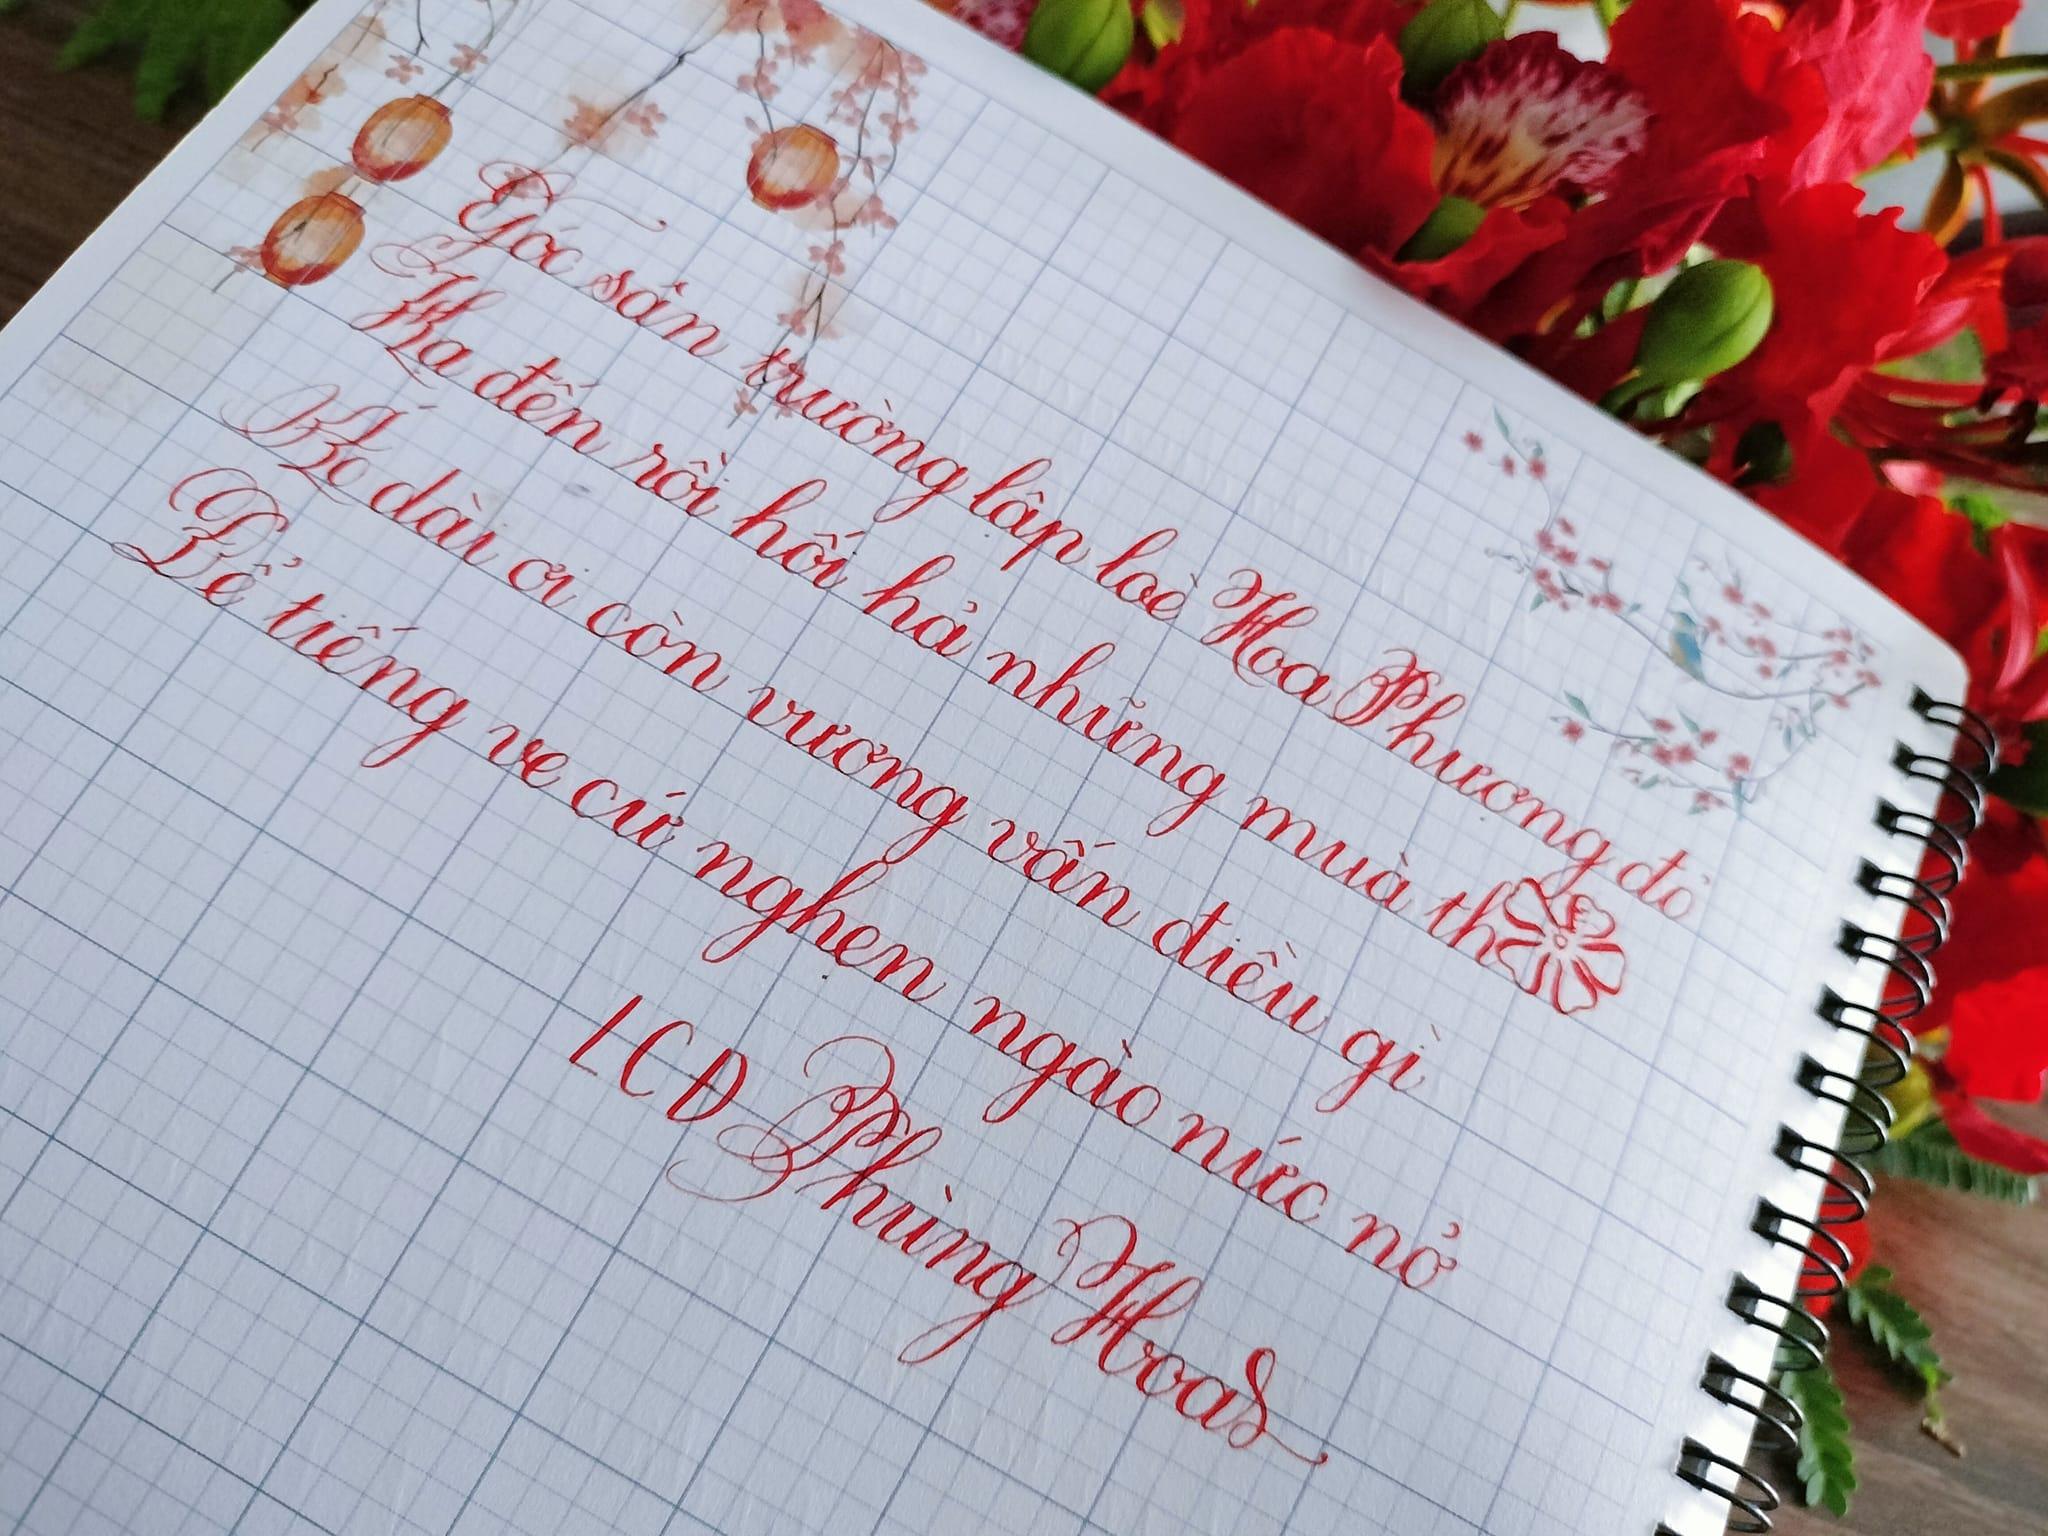 Góc sân trường lập loè Hoa Phượng đỏ
Hạ đến rồi hối hả những muà th
Hè dài ơi còn vương vấn điều gì
Để tiếng ve cứ nghẹn ngào nức nở
LCD Phùng Hoa